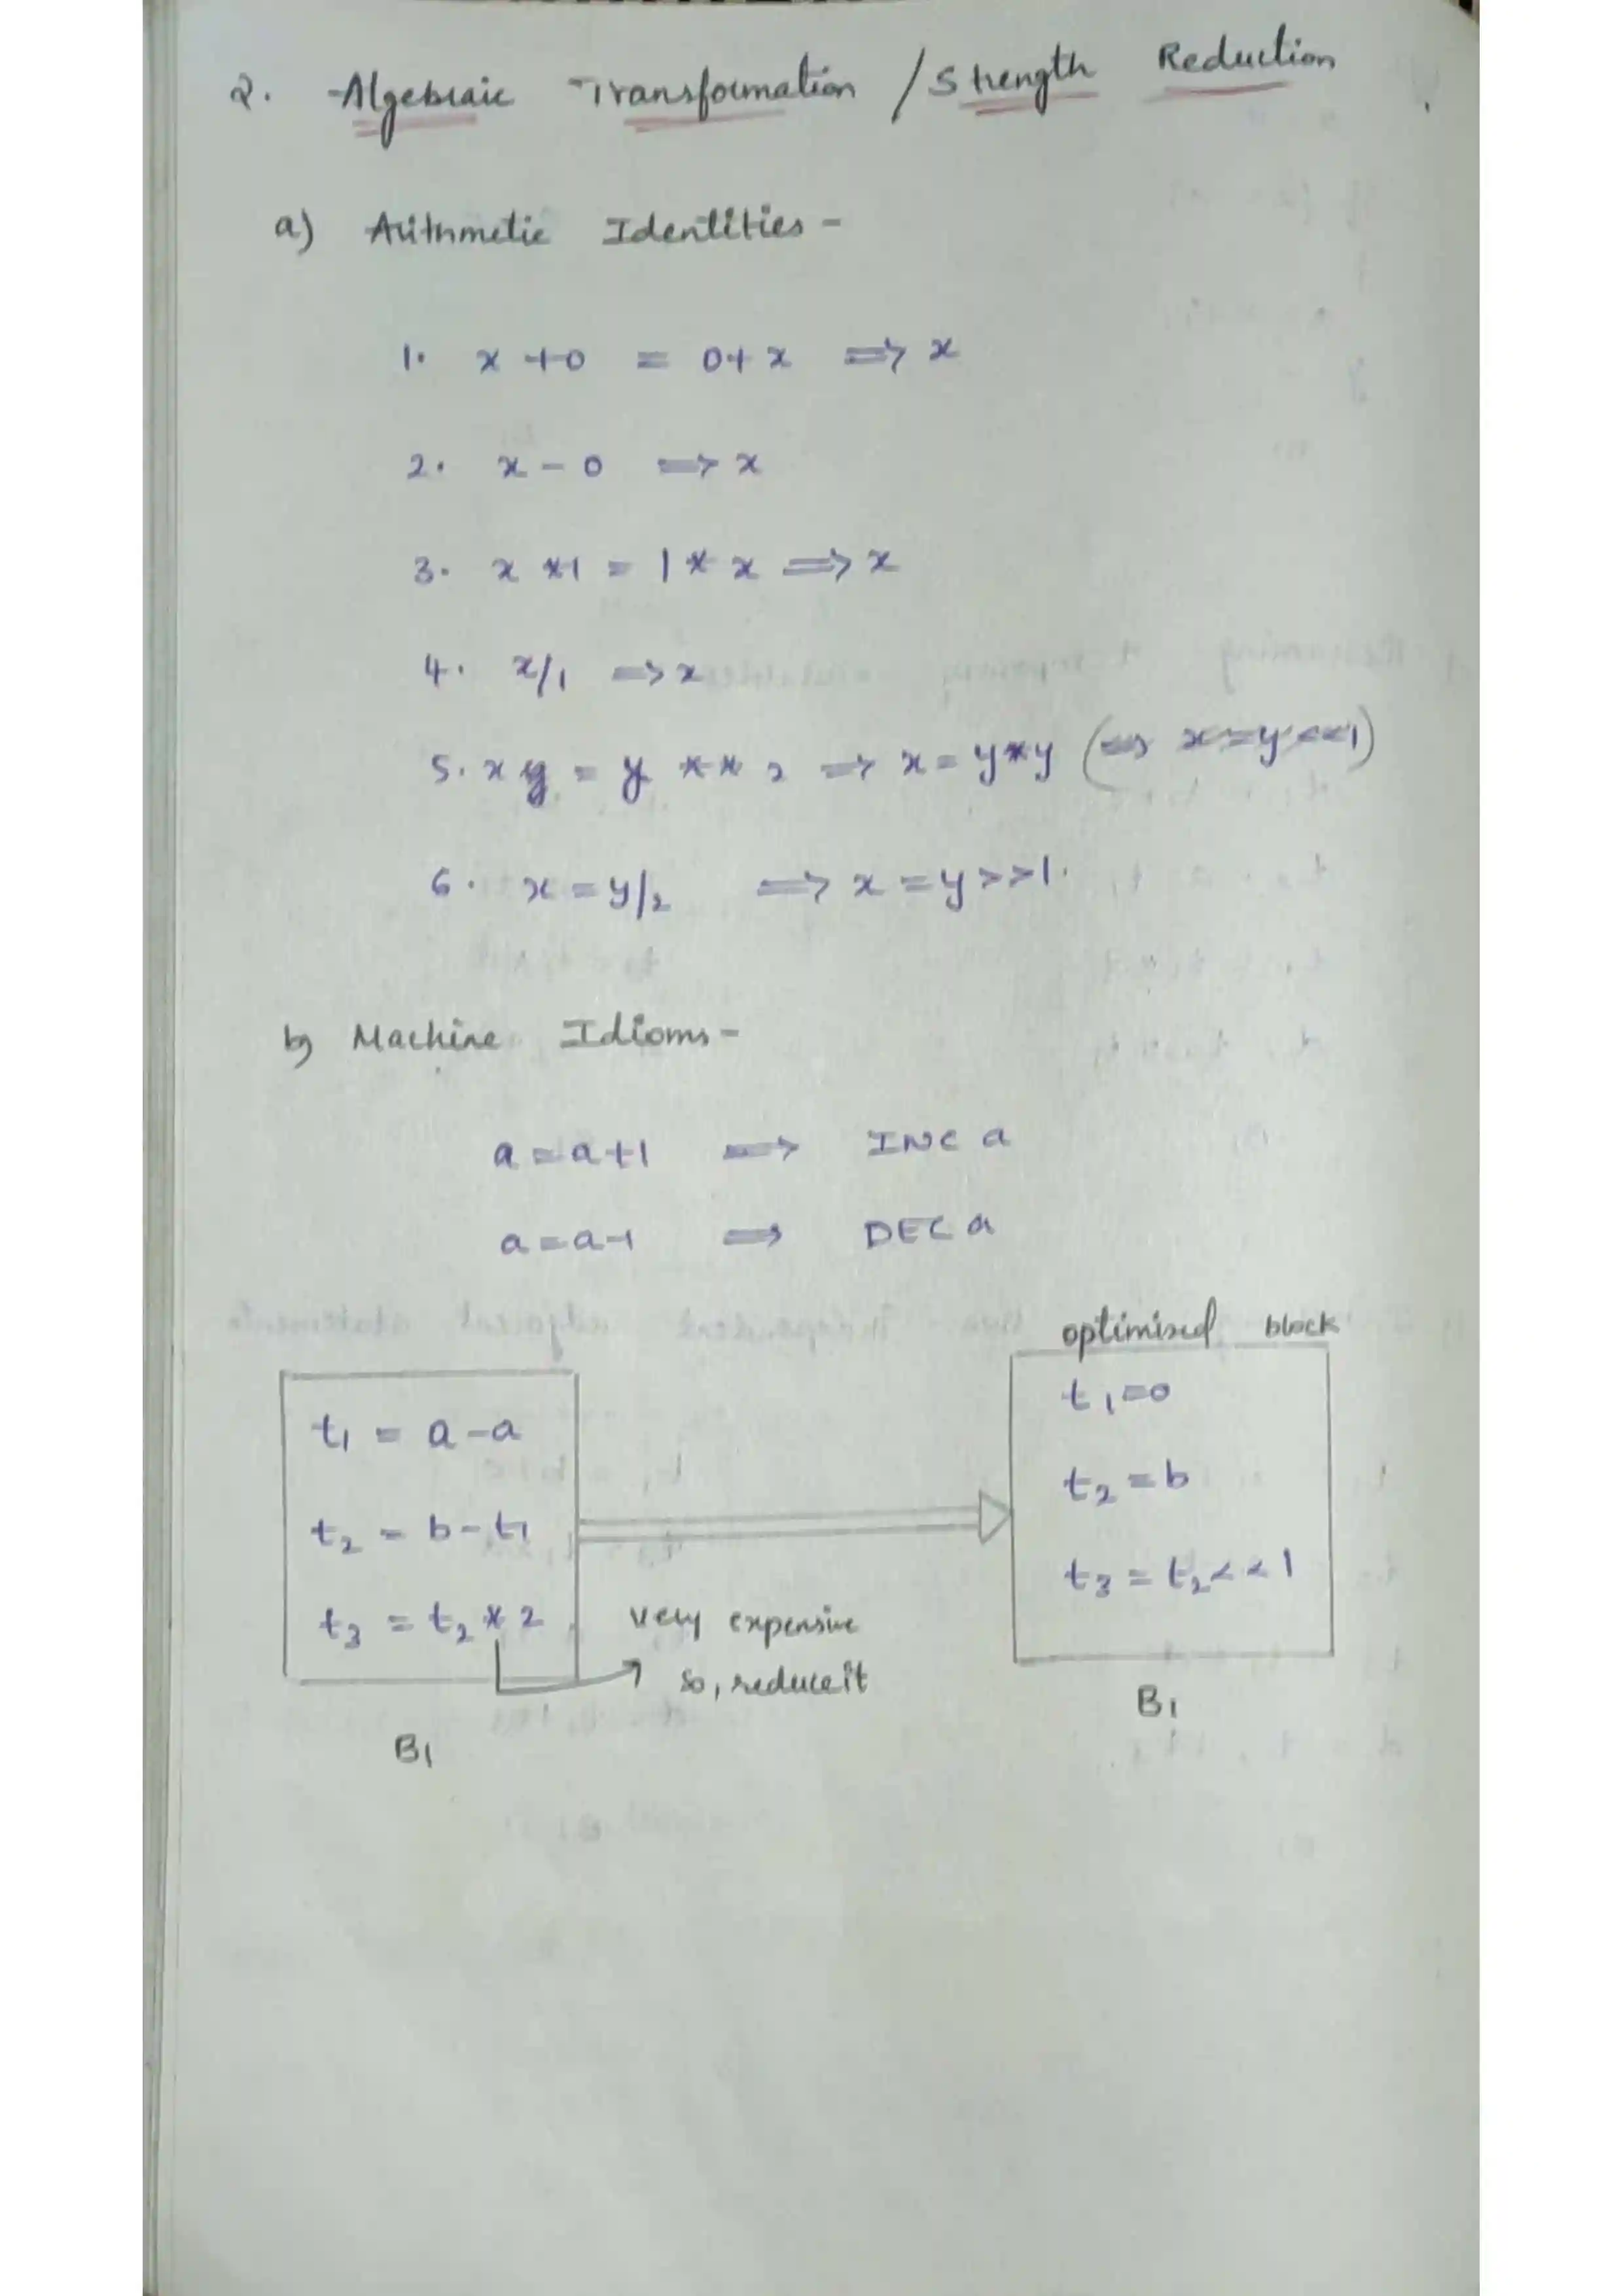 2. Algebraic Transformation / Strength Reduction
a) Arithmetic Identities -
1. x + 0 = 0 + x => x
2. x - 0 => x
3. x * 1 = 1 * x => x
4. x/1 => x
5. x = y ** 2 => x = y*y (=> x = y << 1)
6. x = y/2 => x = y >> 1.
b) Machine Idioms -
a = a+1 => INC a
a = a-1 => DEC a
optimised block
t1 = a - a
t2 = b - t1
t3 = t2 * 2
very expensive
so, reduce it
B1
t1 = 0
t2 = b
t3 = t2 << 1
B1